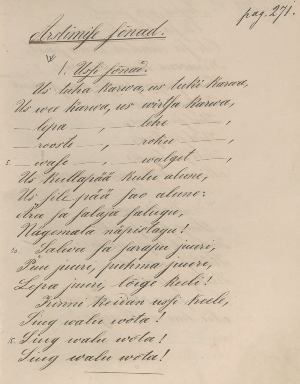 pag. 271.
Arstimise sõnad.
1. Ussi sõnad.
Us luha karwa, us luki karwa,
Us wee karwa, us wirtsa karwa,
— lepa — , — lehe — ,
— roosti — , — rohu — ,
5. — wase — , — walget — ,
Us kullapää kulu alune,
Us pää jao alune:
Ära sa salaja
Nägemata näpistagu!
10. Saleva sa sarapu juuri,
Puu juuri, puhma juuri,
Lepa juuri, kõige keeli!
Kinni keidan ussi keele,
Sing walu wõta!
15. Sing walu wõta!
Sing walu wõta!